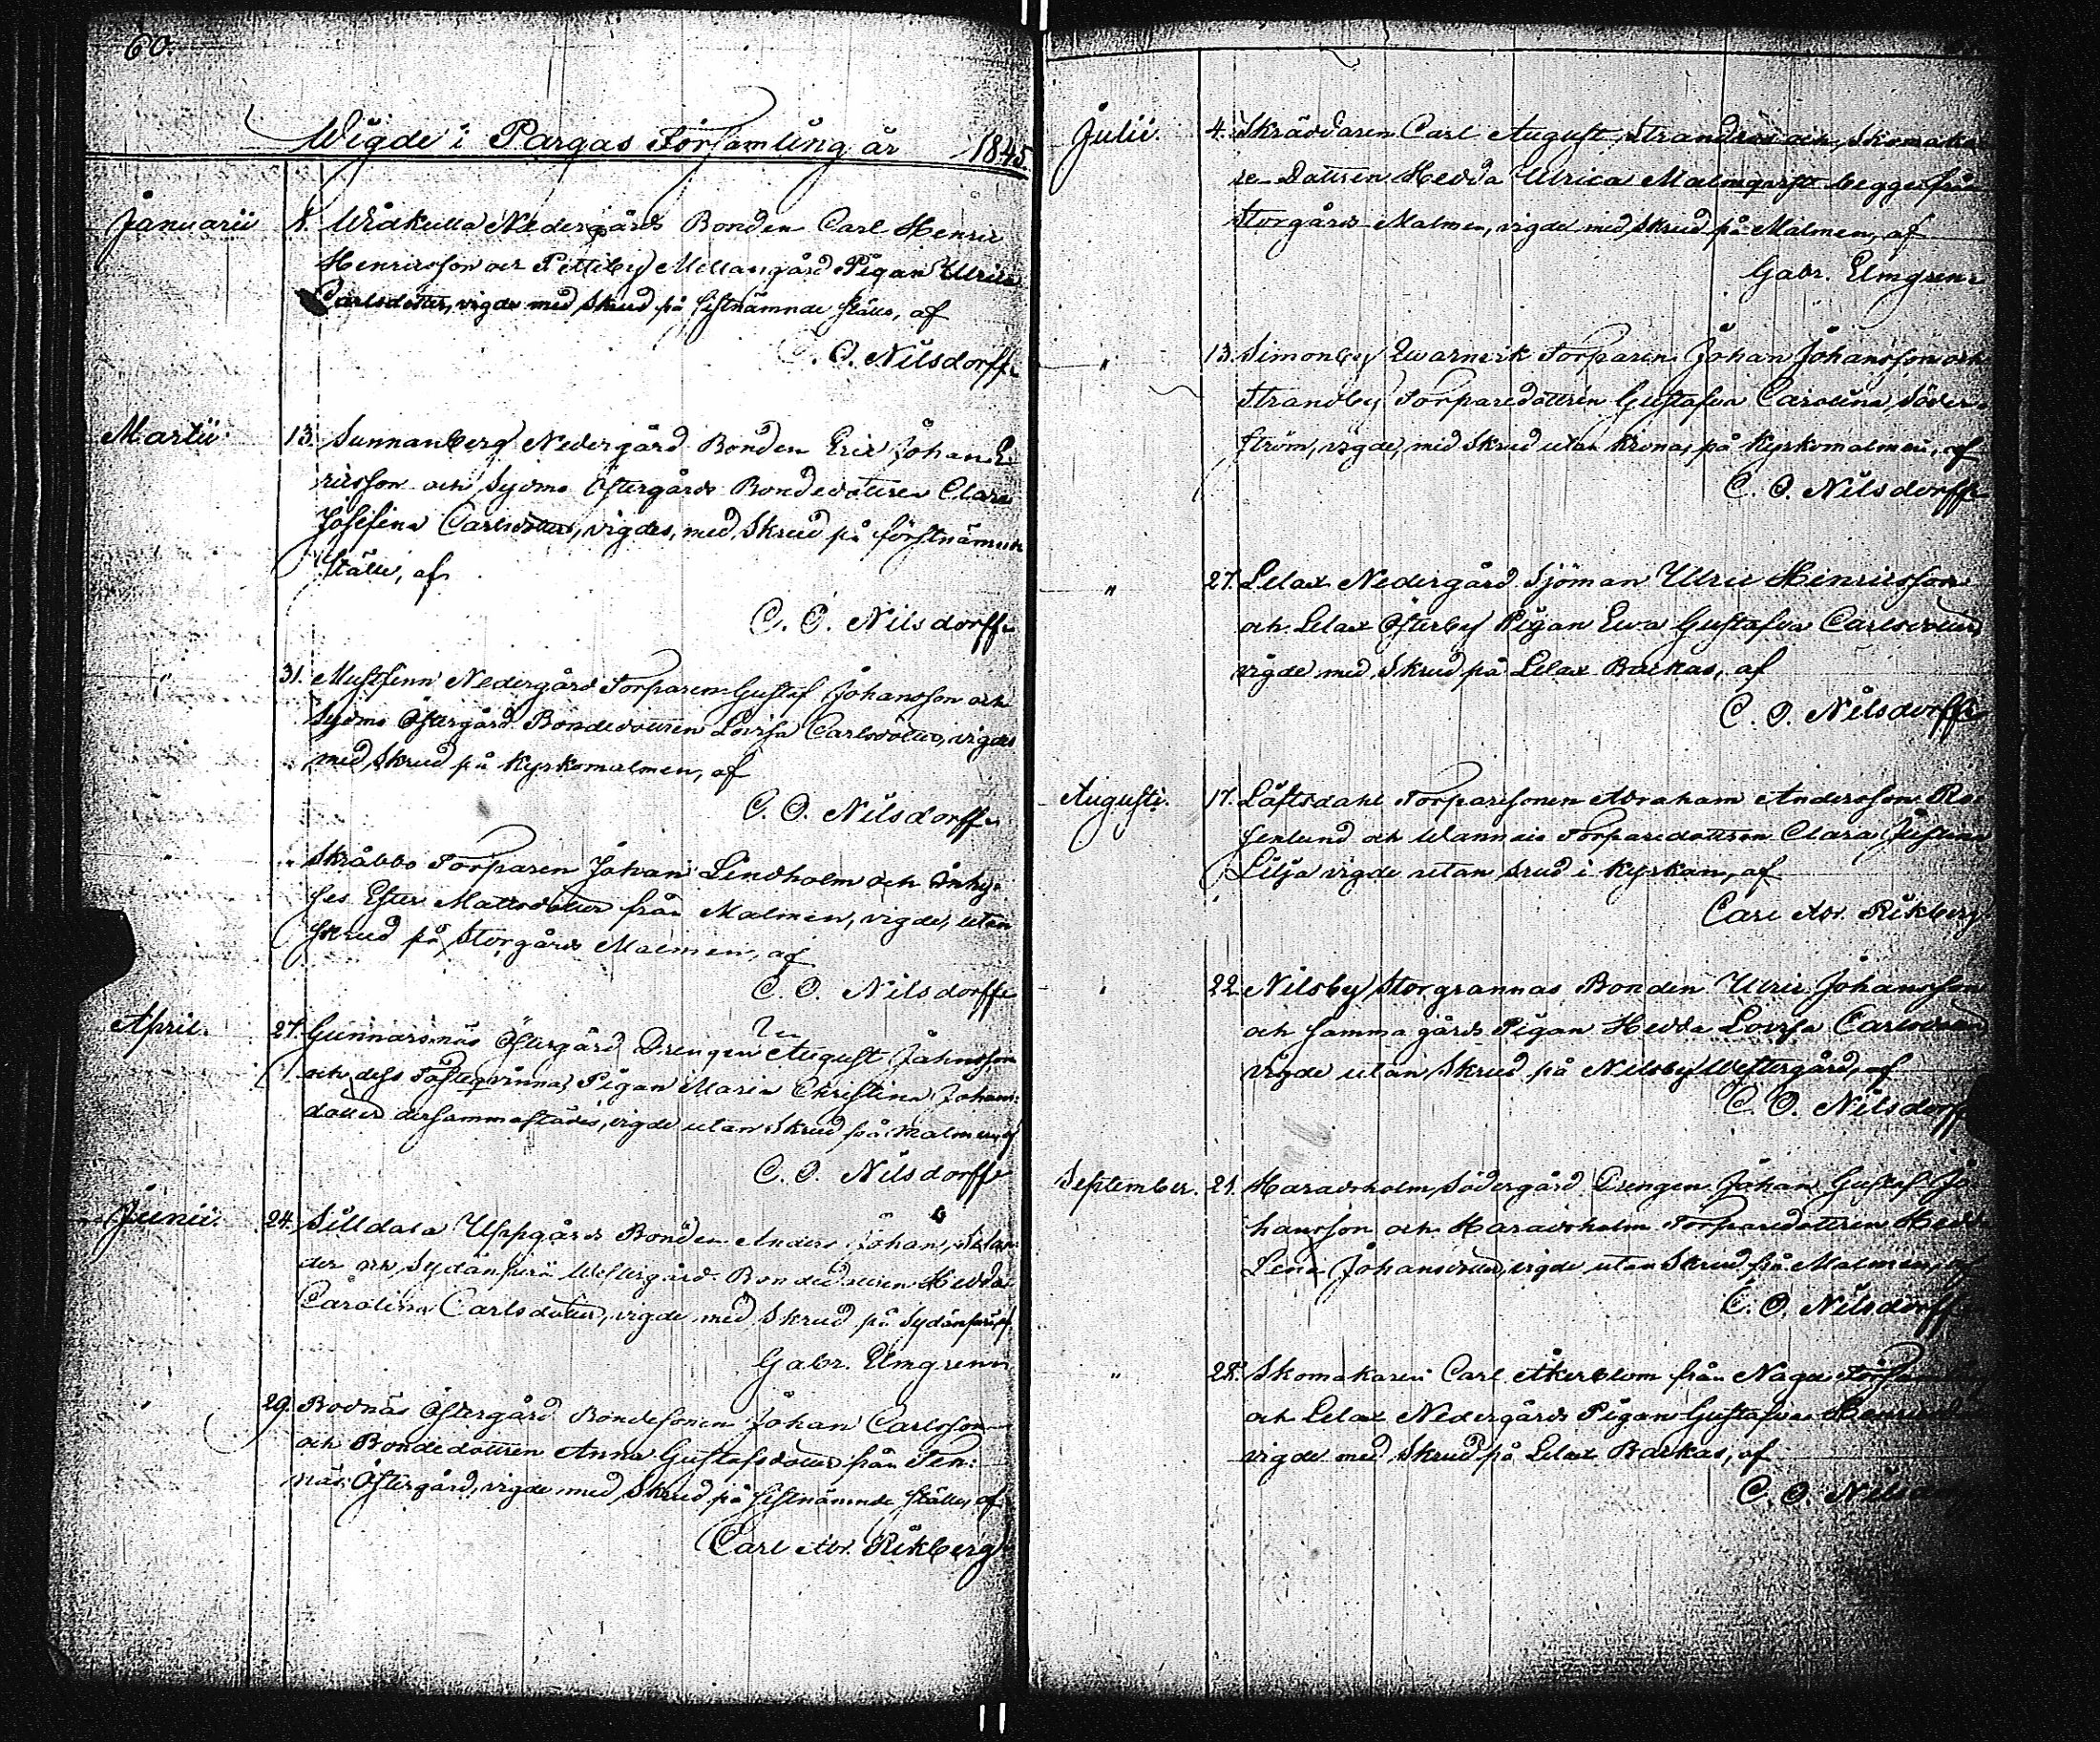 60.
Wigde i Pargas Församling år 1845
Januarii 8. Wråkulla Nedergårds Bonden Carl Henric
Henricsson och Pettiby Mellangård Pigan Ulrica
Carlsdotter, vigde med Skrud på sistnämnde ställe, af
C. O. Nilsdorff.
Martii 13. Sunnanberg Nedergård Bonden Eric Johan E-
ricsson och Sydmo Östergårds Bondedottren Clara
Josefina Carlsdotter, vigdes, med Skrud på förstnämnde
ställe, af
C. O. Nilsdorff.
" 31. Mustfinn Nedergårds Torparen Gustaf Johansson och
Sydmo Östergård Bondedottren Lovisa Carlsdotter, vigdes
med Skrud på Kyrkomalmen, af
C. O. Nilsdorff.
" " Skräbbo Torparen Johan Lindholm och Inhy-
ses Ester Mattsdotter från Malmen, vigde, utan
skrud på Storgårds Malmen, af
C. O. Nilsdorff
April. 27. Gunnarsnäs Östergård Drengen August Johnsson
och dess Fästeqvinna, Pigan Maria Christina Johans-
dotter dersammastädes, vigde utan Skrud på Malmen, af
C. O. Nilsdorff
Junii. 24. Silldala Uppgårds Bonden Anders Johan
der och Sydänperä Westergård Bondedottren Hedda
Carolina Carlsdotter, vigde med Skrud på Sydänperä, af
Gabr. Elmgren
" 29. Bodnäs Östergård Bondesonen Johan Carlsson
och Bondedottren Anna Gustafsdotter från Ten-
näs Östergård, vigde med Skrud på sistnämnde ställe, af
Carl Abr. Rikberg
Julii. 4. Skräddaren Carl August Strandros och Skomaka-
re-Dottren Hedda Ulrica Malmqvist begge från
Storgårds Malmen, vigde med Skrud på Malmen, af
Gabr. Elmgren.
" 13. Simonby Qvarnvik Torparen Johan Johansson och
Strandby Torparedottren Gustafva Carolina Söder-
ström, vigde, med Skrud utan Krona, på Kyrkomalmen, af
C. O. Nilsdorff.
" 27. Lelax Nedergård Sjöman Ulric Henricsson
och Lelax Österby Pigan Eva Gustafva Carlsdotter
vigde med Skrud på Lelax Backas, af
C. O. Nilsdorff
Augusti. 17. Löftsdahl Torparesonen Abraham Andersson Ro-
senlund och Wannais Torparedottren Clara Justina
Lilja vigde utan skrud i Kyrkan, af
Carl Abr. Rikberg
" 22. Nilsby Storgrannas Bonden Ulric Johansson
och samma gårds Pigan Hedda Lovisa Carlsdotter
vigde utan Skrud på Nilsby Westergård, af
C. O. Nilsdorff
September. 21. Haradsholm Södergård Drengen Johan Gustaf Jo-
hansson och Haradsholm Torparedottren Hedda
Lena Johansdotter, vigde utan Skrud på Malmen, af
C. O. Nilsdorff
" 28. Skomakaren Carl Åkerblom från Nagu Församling
och Lelax Nedergårds Pigan Gustafva
vigde med Skrud på Lelax Backas, af
C. O. Nilsdorff